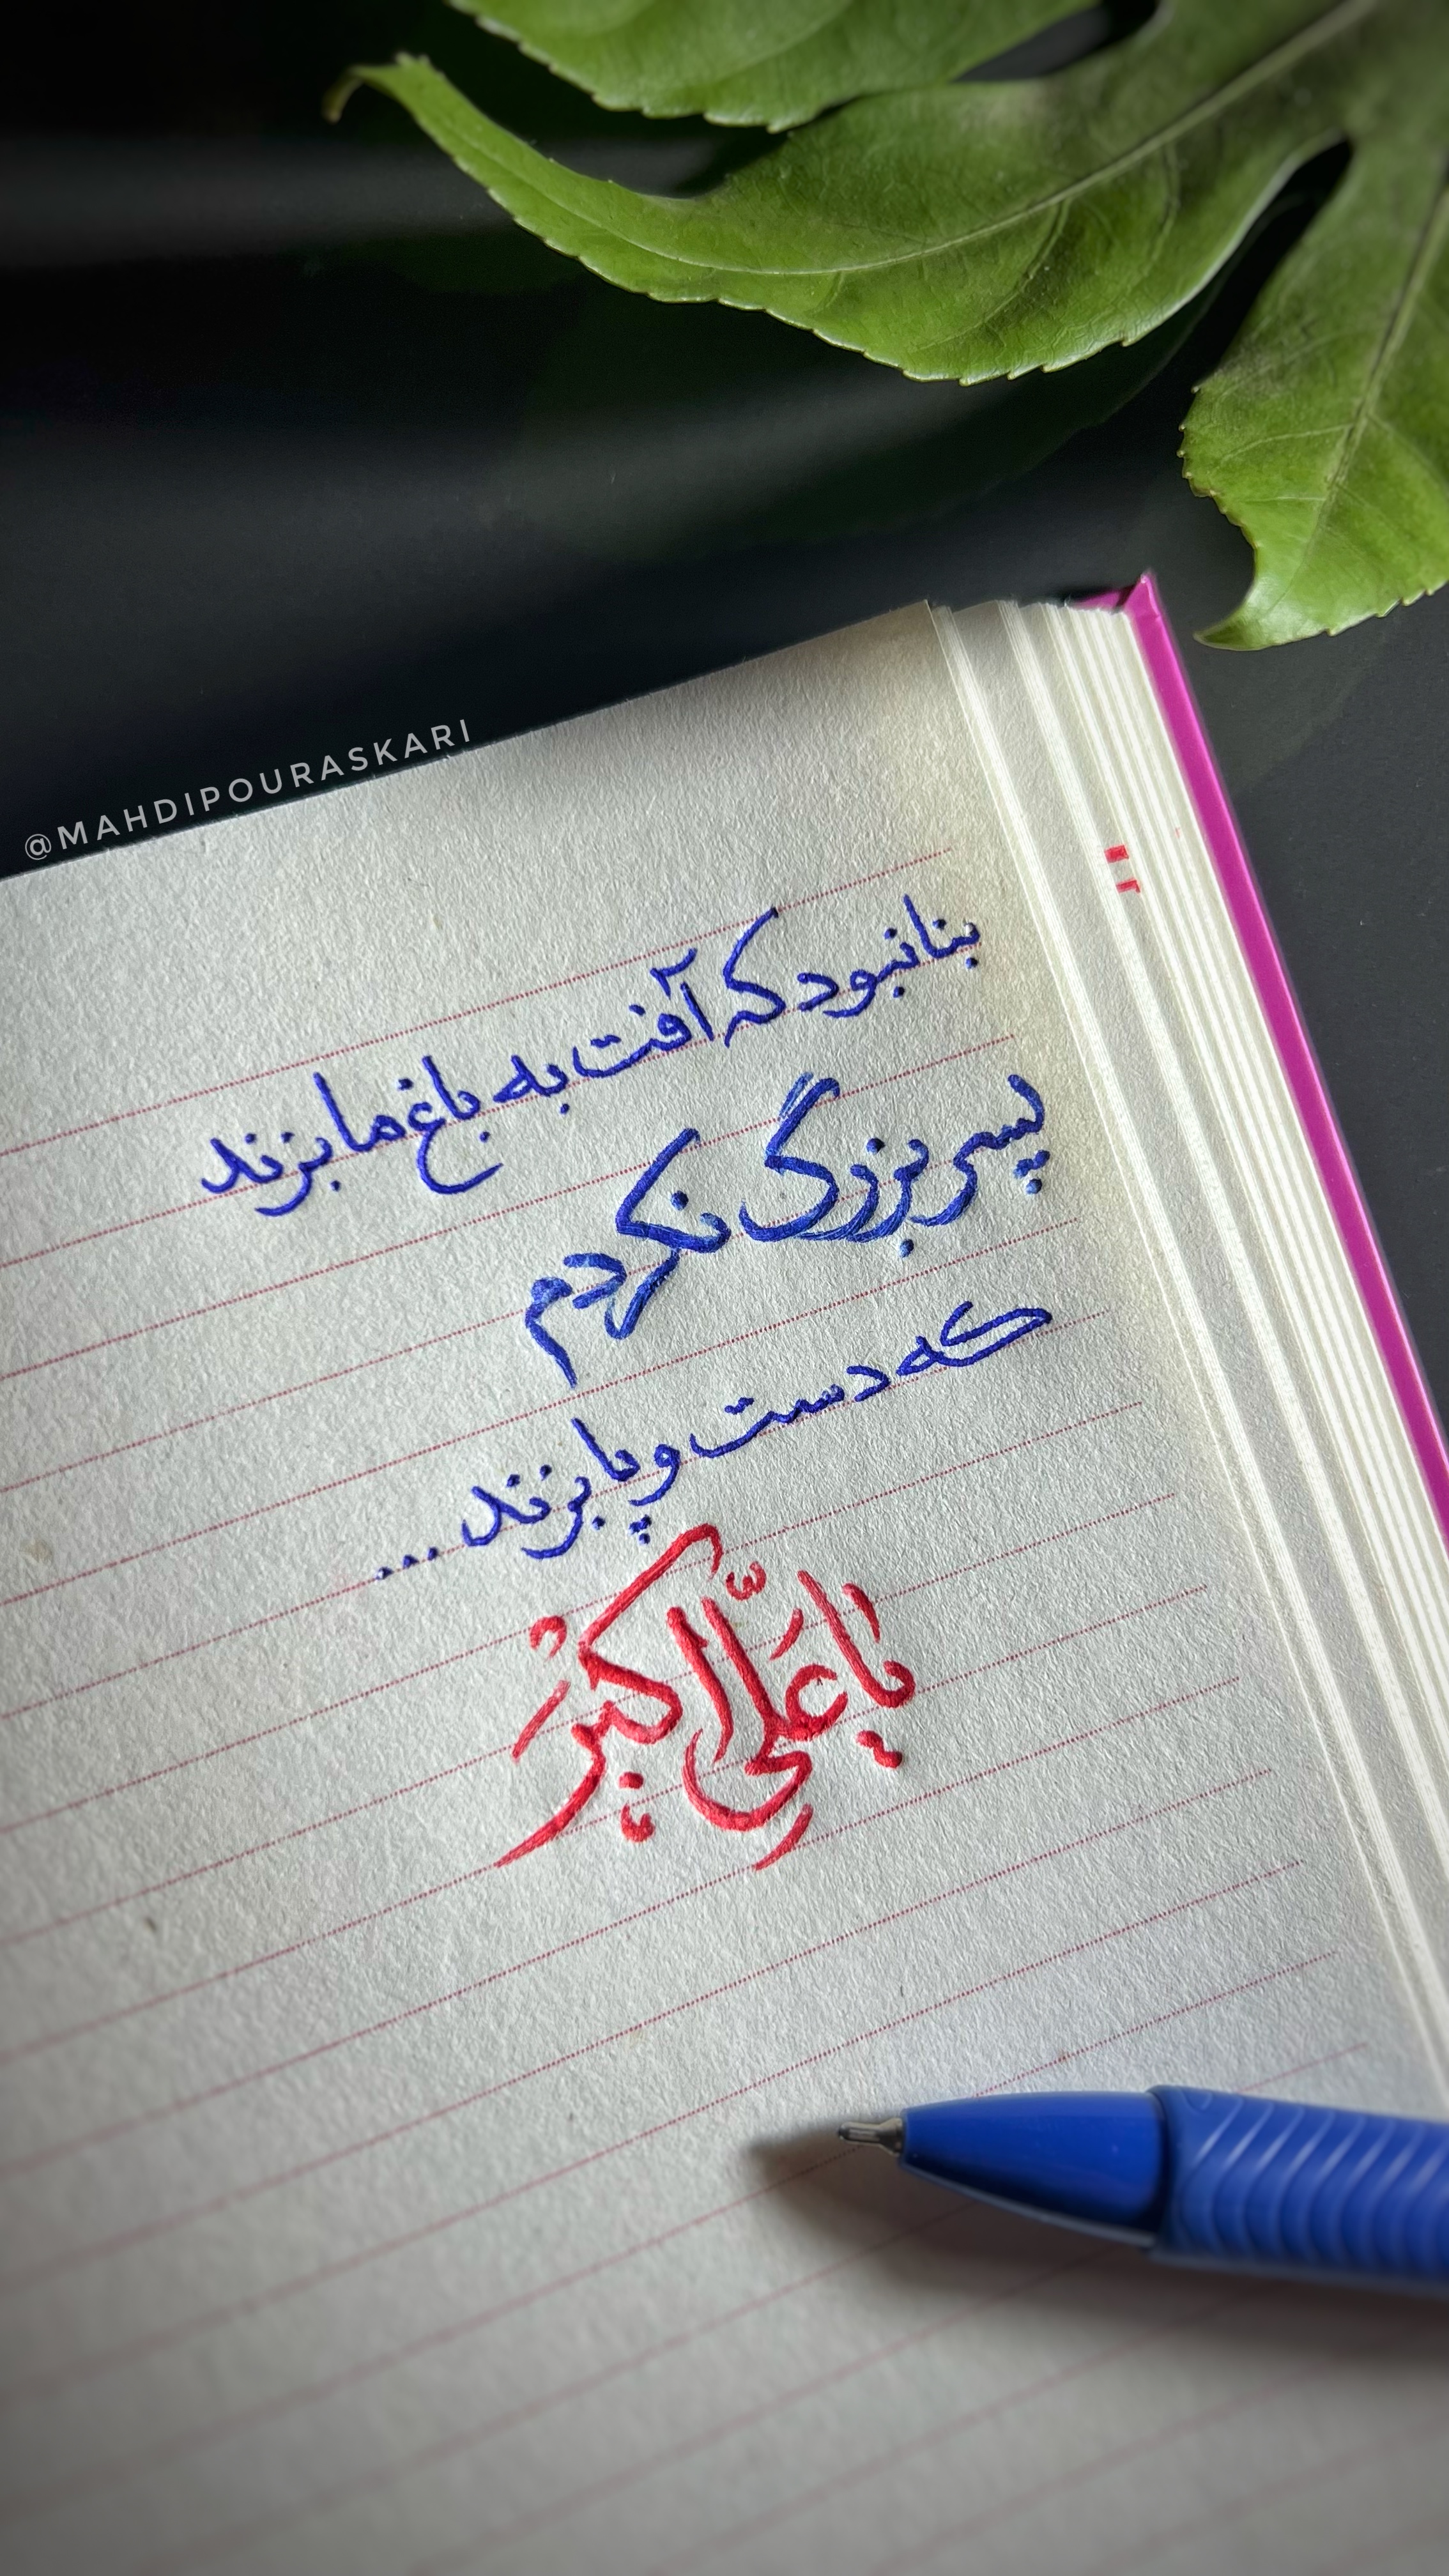 @MAHDIPOURASKARI
بنا نبود که آفت به باغ ما بزند
پسر بزرگ نکردم
که دست و پا بزند ...
یا عَلیّ اکبَرْ